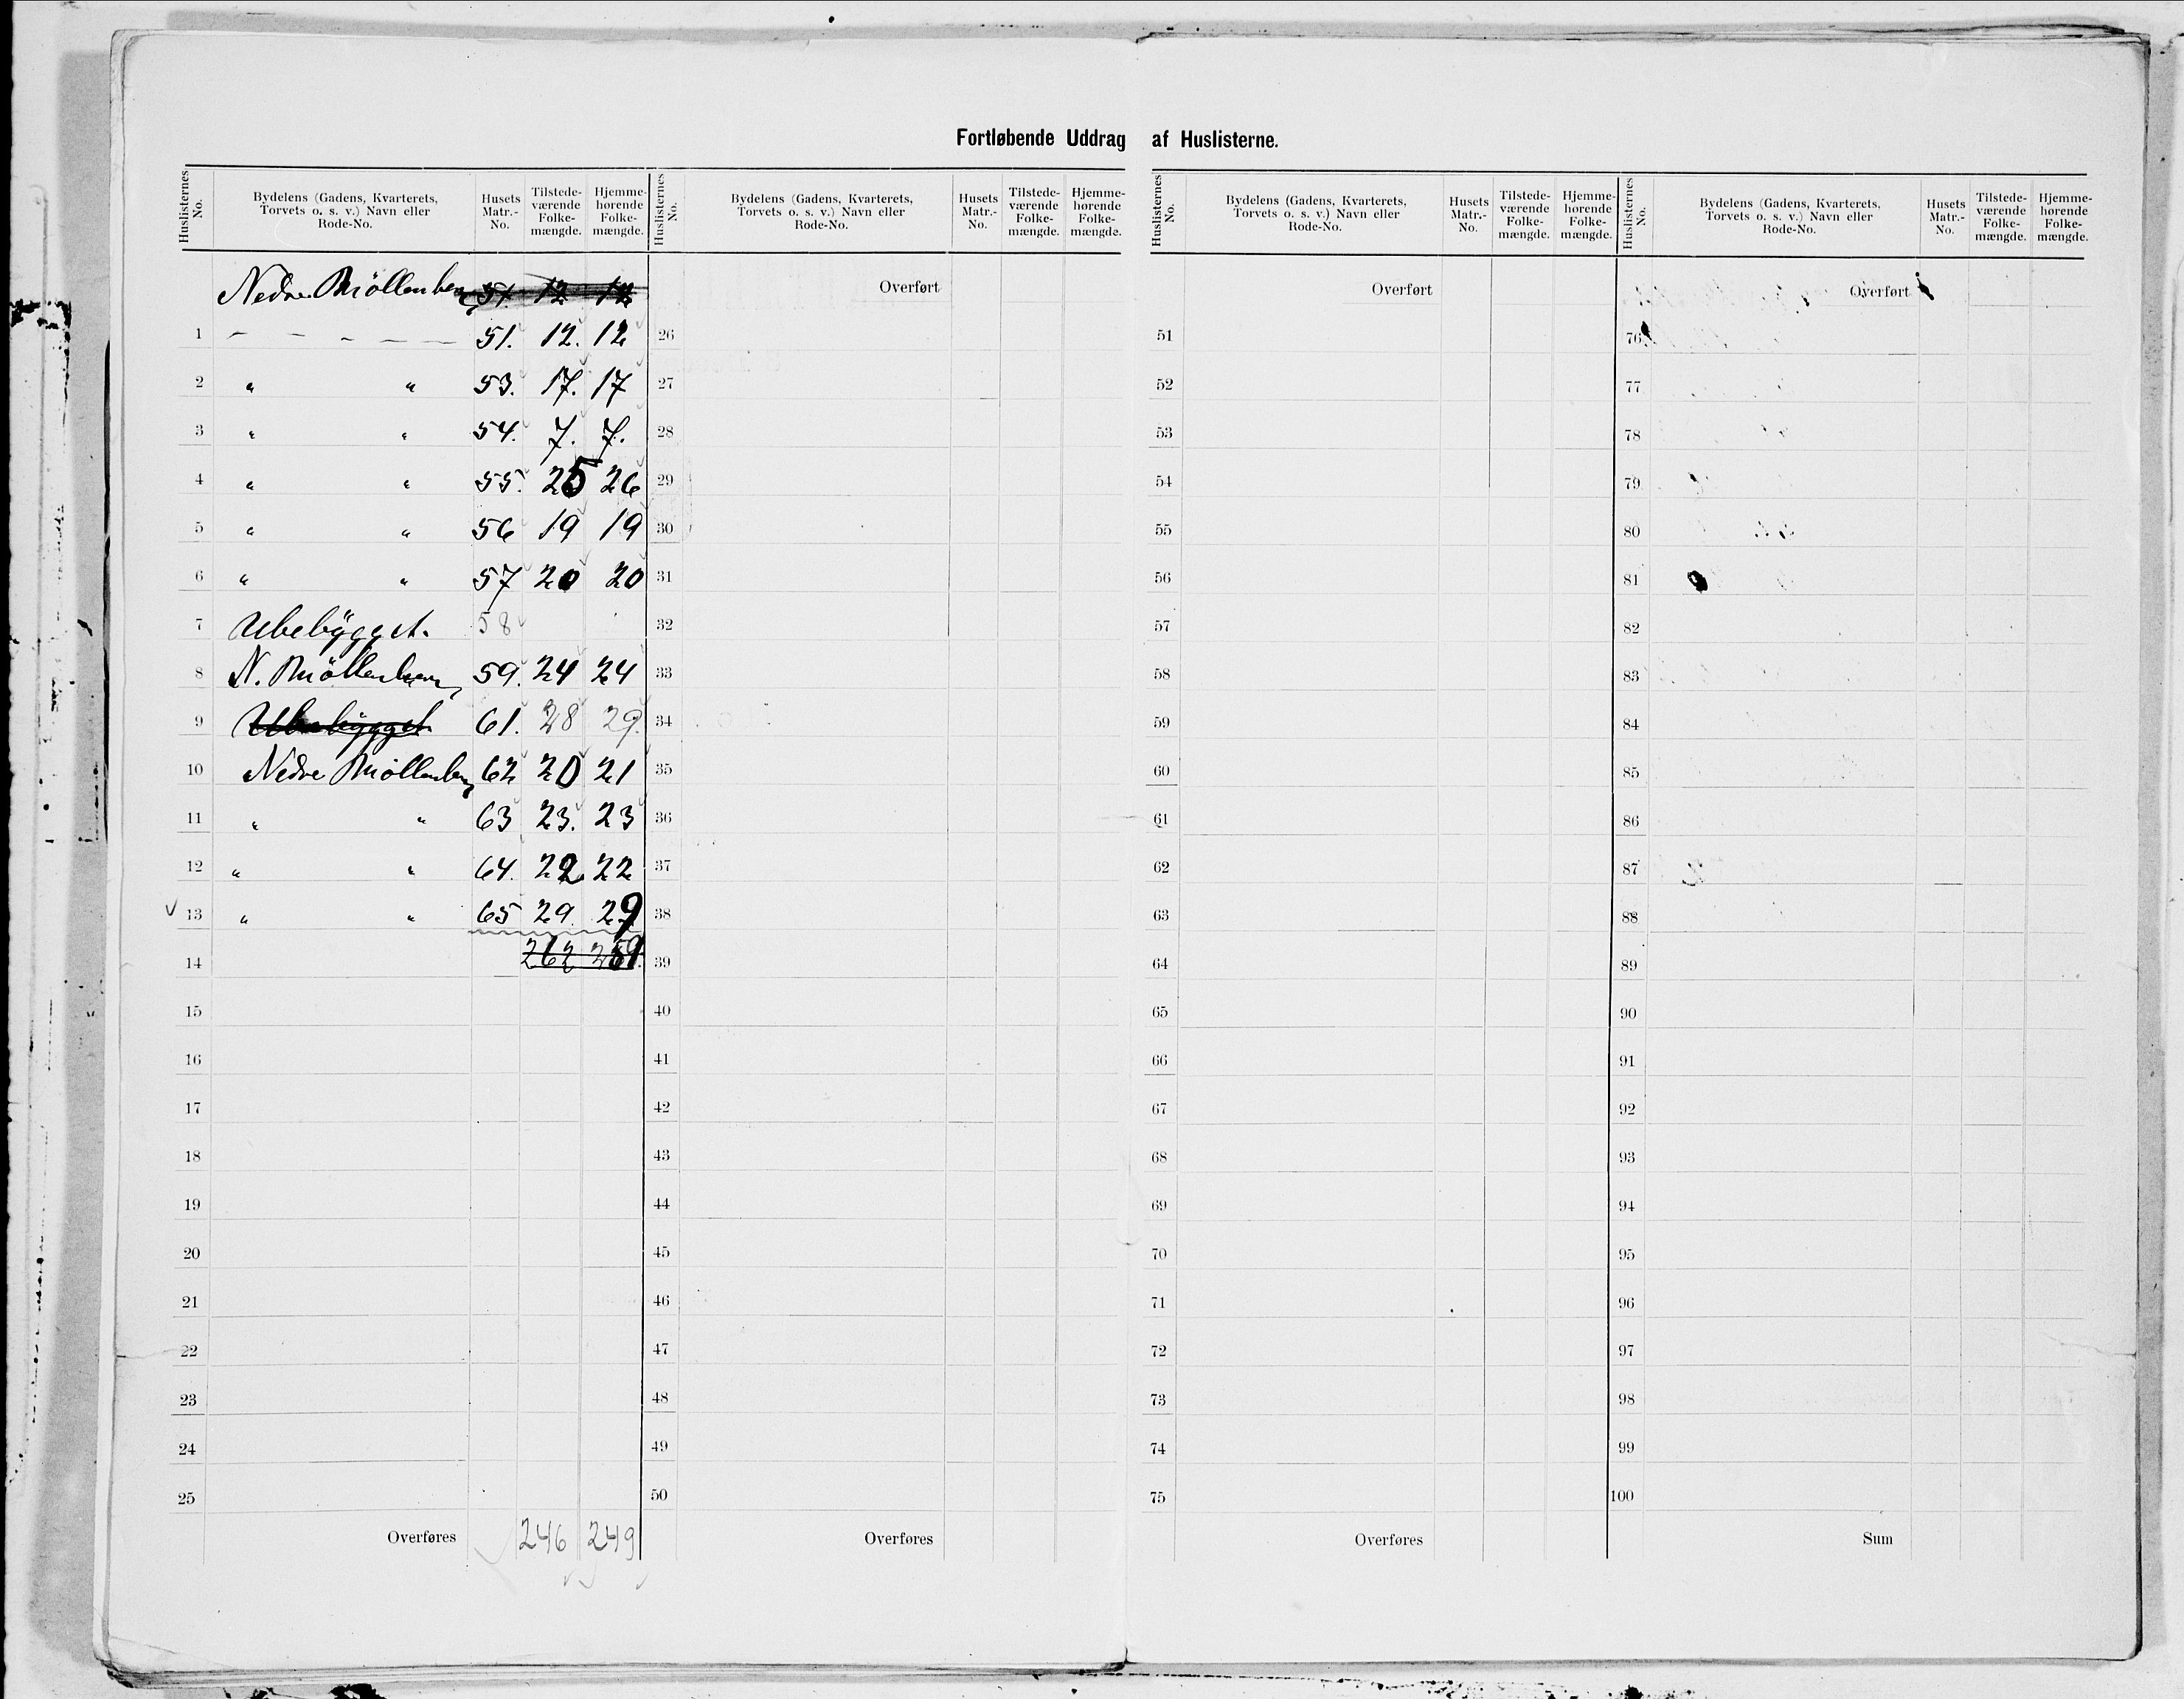 Fortløbende Uddrag af Huslisterne.
Huslisternes No. Bydelens (Gadens, Kvarterets, Torvets o. s. v.) Navn eller Rode-No. Husets Matr.-No. Tilstedeværende Folkemængde. Hjemmehørende Folkemængde.
Huslisternes No. Bydelens (Gadens, Kvarterets, Torvets o. s. v.) Navn eller Rode-No. Husets Matr.-No. Tilstedeværende Folkemængde. Hjemmehørende Folkemængde.
Huslisternes No. Bydelens (Gadens, Kvarterets, Torvets o. s. v.) Navn eller Rode-No. Husets Matr.-No. Tilstedeværende Folkemængde. Hjemmehørende Folkemængde.
Huslisternes No. Bydelens (Gadens, Kvarterets, Torvets o. s. v.) Navn eller Rode-No. Husets Matr.-No. Tilstedeværende Folkemængde. Hjemmehørende Folkemængde.
Nedre Möllenberg 51. 12 12
1 – – – – – – 51. 12. 12
2 " " 53. 17. 17
3 " " 54. 7. 7.
4 " " 55. 25 26
5 " " 56 19 19
6 " " 57 20 20
7 Ubebÿgget. 58
8 N. Möllenberg 59. 24 24
9 Ubebÿgget 61. 28 29.
10 Nedre Möllenberg 62 20 21
11 " " 63 23. 23
12 " " 64. 22. 22
13 " " 65 29. 29
14 262 259.
15
16
17
18
19
20
21
22
23
24
25
Overføres 246 249
Overført
26
27
28
29
30
31
32
33
34
35
36
37
38
39
40
41
42
43
44
45
46
47
48
49
50
Overføres
Overført
51
52
53
54
55
56
57
58
59
60
61
62
63
64
65
66
67
68
69
70
71
72
73
74
75
Overføres
Overført
76
77
78
79
80
81
82
83
84
85
86
87
88
89
90
91
92
93
94
95
96
97
98
99
100
Sum